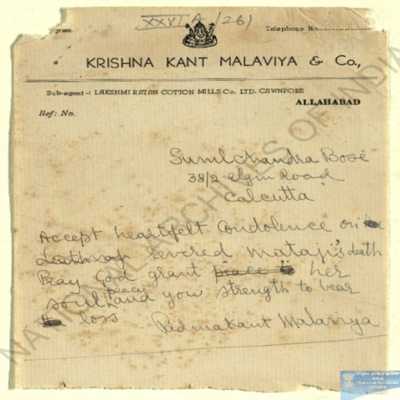 XXVI A (26)
Telegram.
Telephone No.
KRISHNA KANT MALAVIYA & Co.,
Sub-agent :- LAKSHMI RATAN COTTON MILLS Co. LTD. CAWNPORE
ALLAHABAD
Ref: No.
Sunil Chandra Bose
38/2 Elgin Road
Calcutta
Accept heartfelt condolence on
revered Mataji's death
Pray God grant peace to her
soul peace and you strength to bear
loss Padmakant Malaviya
NATIONAL ARCHIVES OF INDIA